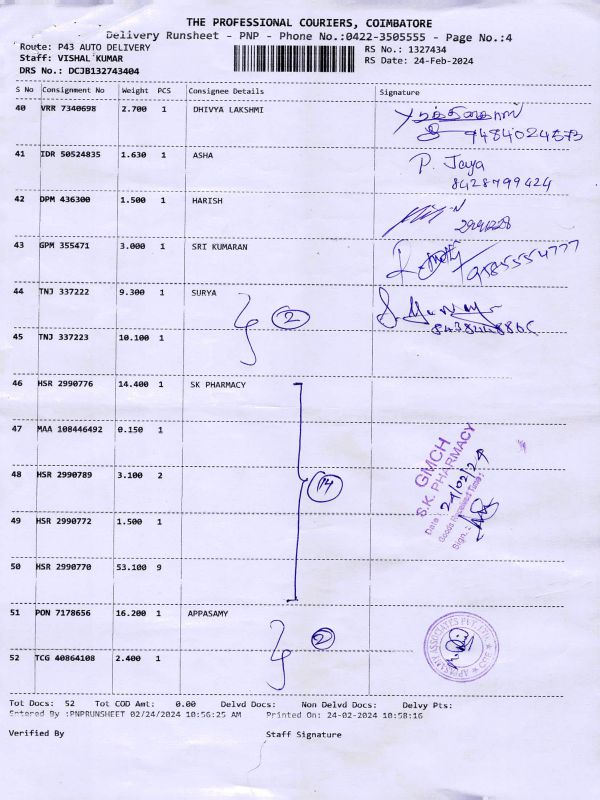 THE PROFESSIONAL COURIERS, COIMBATORE
Delivery Runsheet - PNP - Phone No.:0422-3505555 - Page No.:4
Route: P43 AUTO DELIVERY RS No.: 1327434
Staff: VISHAL KUMAR RS Date: 24-Feb-2024
DRS No.: DCJB132743404
S No Consignment No Weight PCS Consignee Details Signature
40 VRR 7340698 2.700 1 DHIVYA LAKSHMI
41 IDR 50524835 1.630 1 ASHA P. Jaya
8428799424
42 DPM 436300 1.500 1 HARISH
43 GPM 355471 3.000 1 SRI KUMARAN
44 TNJ 337222 9.300 1 SURYA 2
45 TNJ 337223 10.100 1
46 HSR 2990776 14.400 1 SK PHARMACY
47 MAA 108446492 0.150 1
GMCH
S.K. PHARMACY
48 HSR 2990789 3.100 2 14
Date : 24/02/24
Goods Received Today
Sign. :
49 HSR 2990772 1.500 1
50 HSR 2990770 53.100 9
51 PON 7178656 16.200 1 APPASAMY 2
APPASAMY ASSOCIATES PVT LTD CBE
52 TCG 40864108 2.400 1
Tot Docs: 52 Tot COD Amt: 0.00 Delvd Docs: Non Delvd Docs: Delvy Pts:
Entered By :PNPRUNSHEET 02/24/2024 10:56:25 AM Printed On: 24-02-2024 10:58:16
Verified By Staff Signature